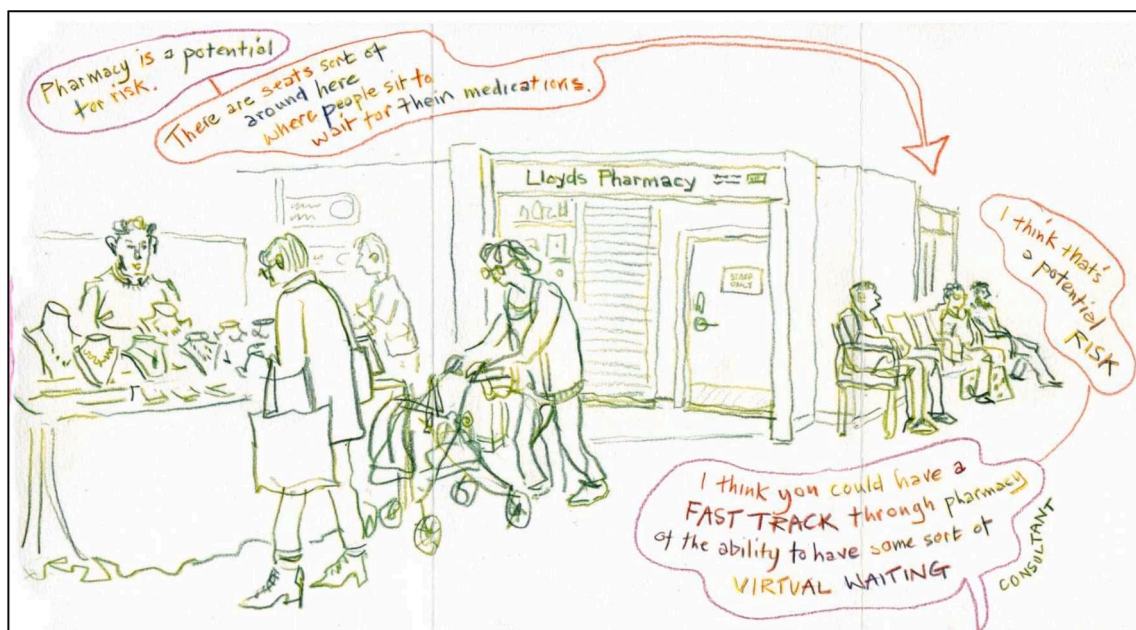 Pharmacy is a potential
for risk.
There are seats sort of
around here
where people sit to
wait for thein medications.
Lloyds Pharmacy
STAFF
ONLY
I think that's
a potential
RISK
I think you could have a
FAST TRACK through pharmacy
of the ability to have some sort of
VIRTUAL WAITING
CONSULTANT